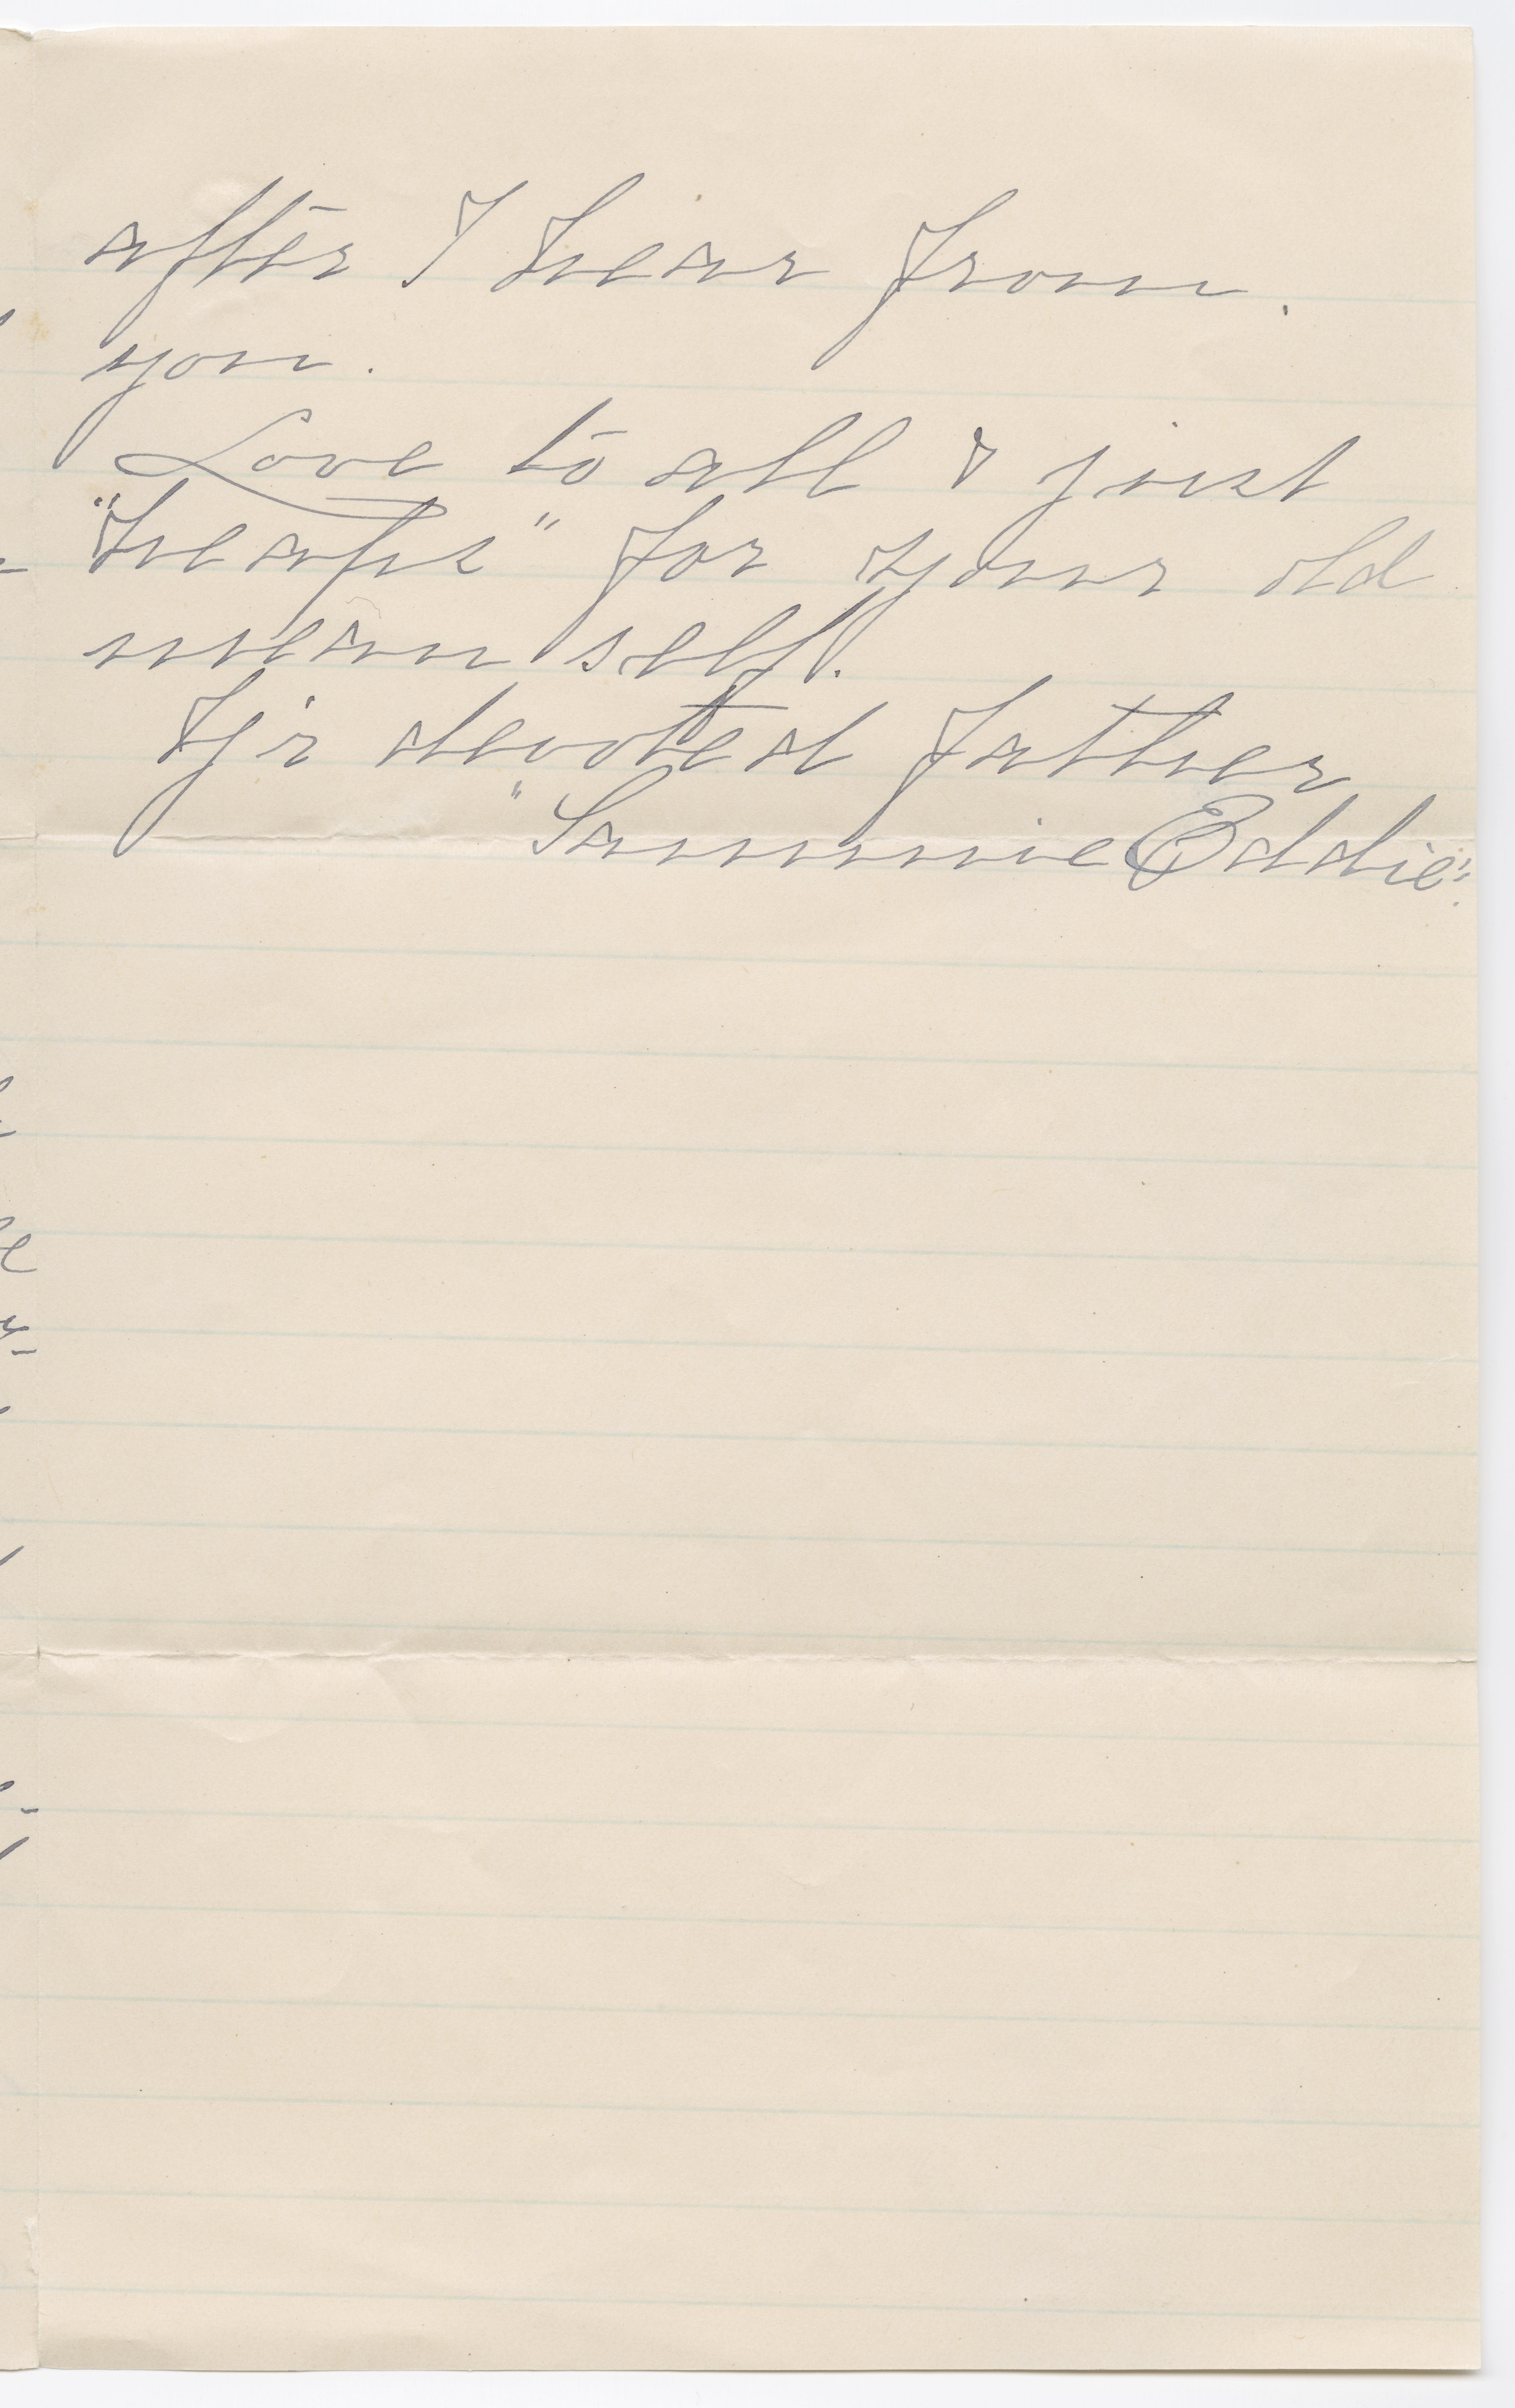 after I hear from.
you.
Love to all & just
"heaps" for your old
mean self.
Y'r devoted father
"Sammie Eddie".